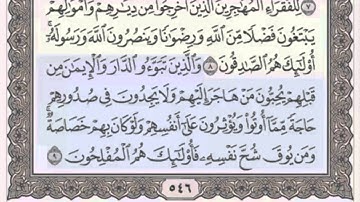 ٧ لِلْفُقَرَآءِ ٱلْمُهَٰجِرِينَ ٱلَّذِينَ أُخْرِجُوا۟ مِن دِيَٰرِهِمْ وَأَمْوَٰلِهِمْ
يَبْتَغُونَ فَضْلًا مِّنَ ٱللَّهِ وَرِضْوَٰنًا وَيَنصُرُونَ ٱللَّهَ وَرَسُولَهُۥٓ ۚ
أُو۟لَٰٓئِكَ هُمُ ٱلصَّٰدِقُونَ ٨ وَٱلَّذِينَ تَبَوَّءُو ٱلدَّارَ وَٱلْإِيمَٰنَ مِن
قَبْلِهِمْ يُحِبُّونَ مَنْ هَاجَرَ إِلَيْهِمْ وَلَا يَجِدُونَ فِى صُدُورِهِمْ
حَاجَةً مِّمَّآ أُوتُوا۟ وَيُؤْثِرُونَ عَلَىٰٓ أَنفُسِهِمْ وَلَوْ كَانَ بِهِمْ خَصَاصَةٌ ۚ
وَمَن يُوقَ شُحَّ نَفْسِهِۦ فَأُو۟لَٰٓئِكَ هُمُ ٱلْمُفْلِحُونَ ٩
٥٤٦